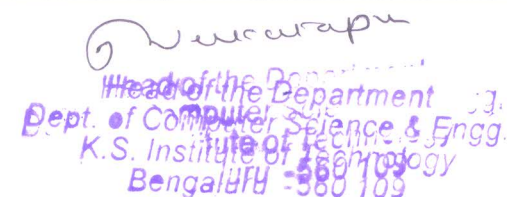 Head of the Department
Dept. of Computer Science & Engg.
K.S. Institute of Technology
Bengaluru -560 109